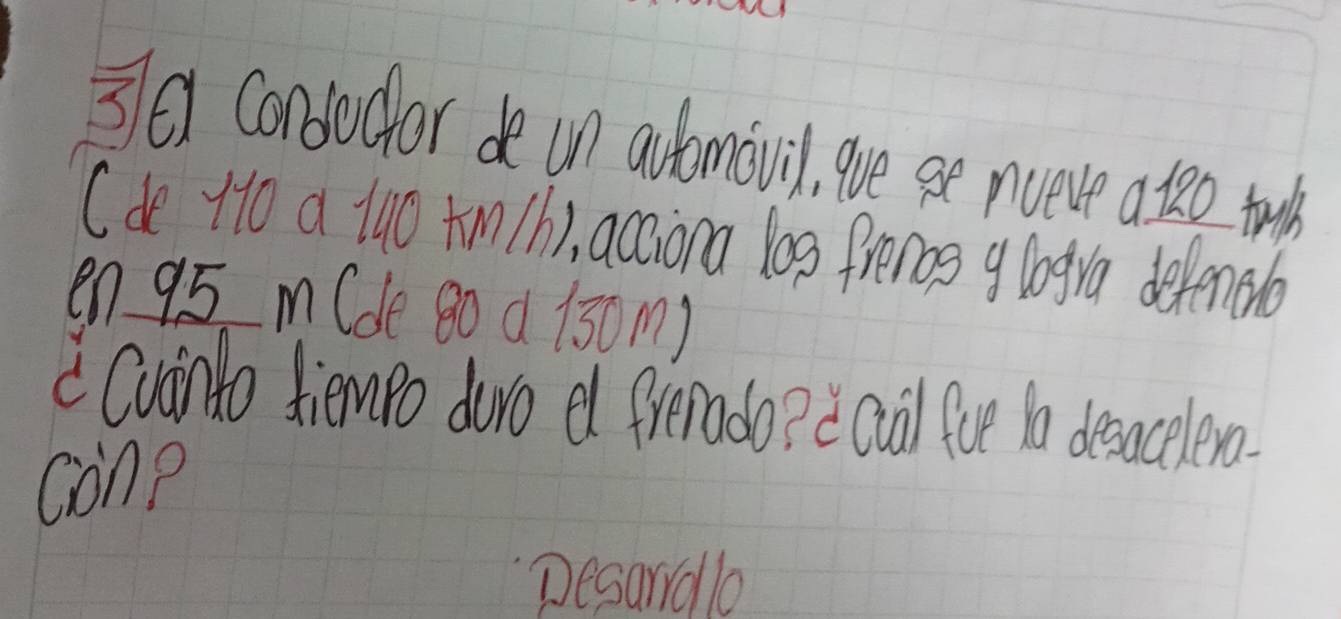 3) El Conductor de un automóvil, que se mueve a 120 km/h
(de 110 a 140 km/h), acciona los frenos y logra detenerlo
en 95 m (de 80 a 130 m)
¿Cuánto tiempo duro el frenado? ¿Cuál fue la desacelera-
ción?
Desarrollo